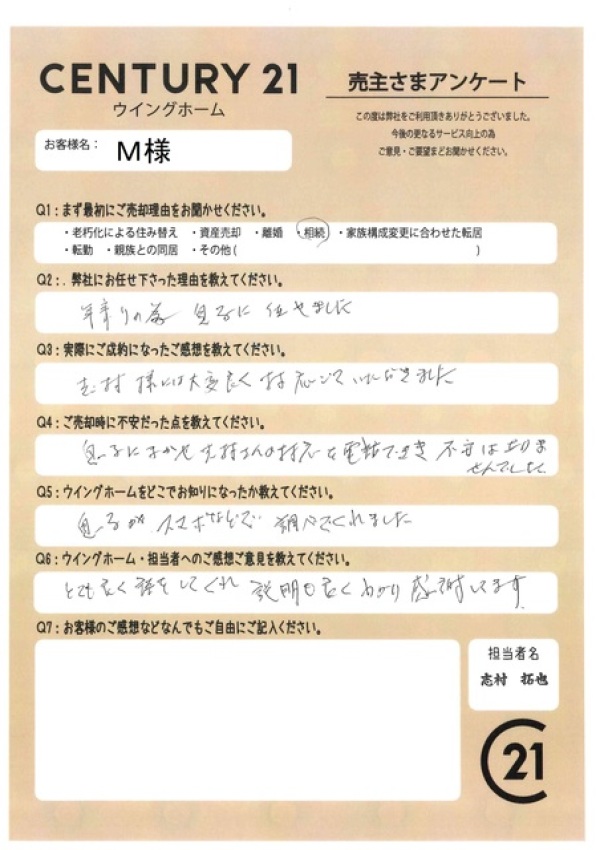 CENTURY 21
ウイングホーム
売主さまアンケート
この度は弊社をご利用頂きありがとうございました。
今後の更なるサービス向上の為
ご意見・ご要望をお聞かせください。
お客様名: M様
Q1:まず最初にご売却理由をお聞かせください。
・老朽化による住み替え ・資産売却 ・離婚 ・相続 ・家族構成変更に合わせた転居
・転勤 ・親族との同居 ・その他( )
Q2:. 弊社にお任せ下さった理由を教えてください。
年寄りの為 息子に 任せました
Q3:実際にご成約になったご感想を教えてください。
志村 様には大変良く対応していただきました
Q4:ご売却時に不安だった点を教えてください。
息子にまかせ 志村さんの対応も電話でき 不安はありま
せんでした
Q5:ウイングホームをどこでお知りになったか教えてください。
息子が スマホなどで 調べてくれました
Q6:ウイングホーム・担当者へのご感想ご意見を教えてください。
とても良く 話をしてくれ 説明も良く わかり 感謝してます
Q7:お客様のご感想などなんでもご自由にご記入ください。
担当者名
志村 拓也
C21